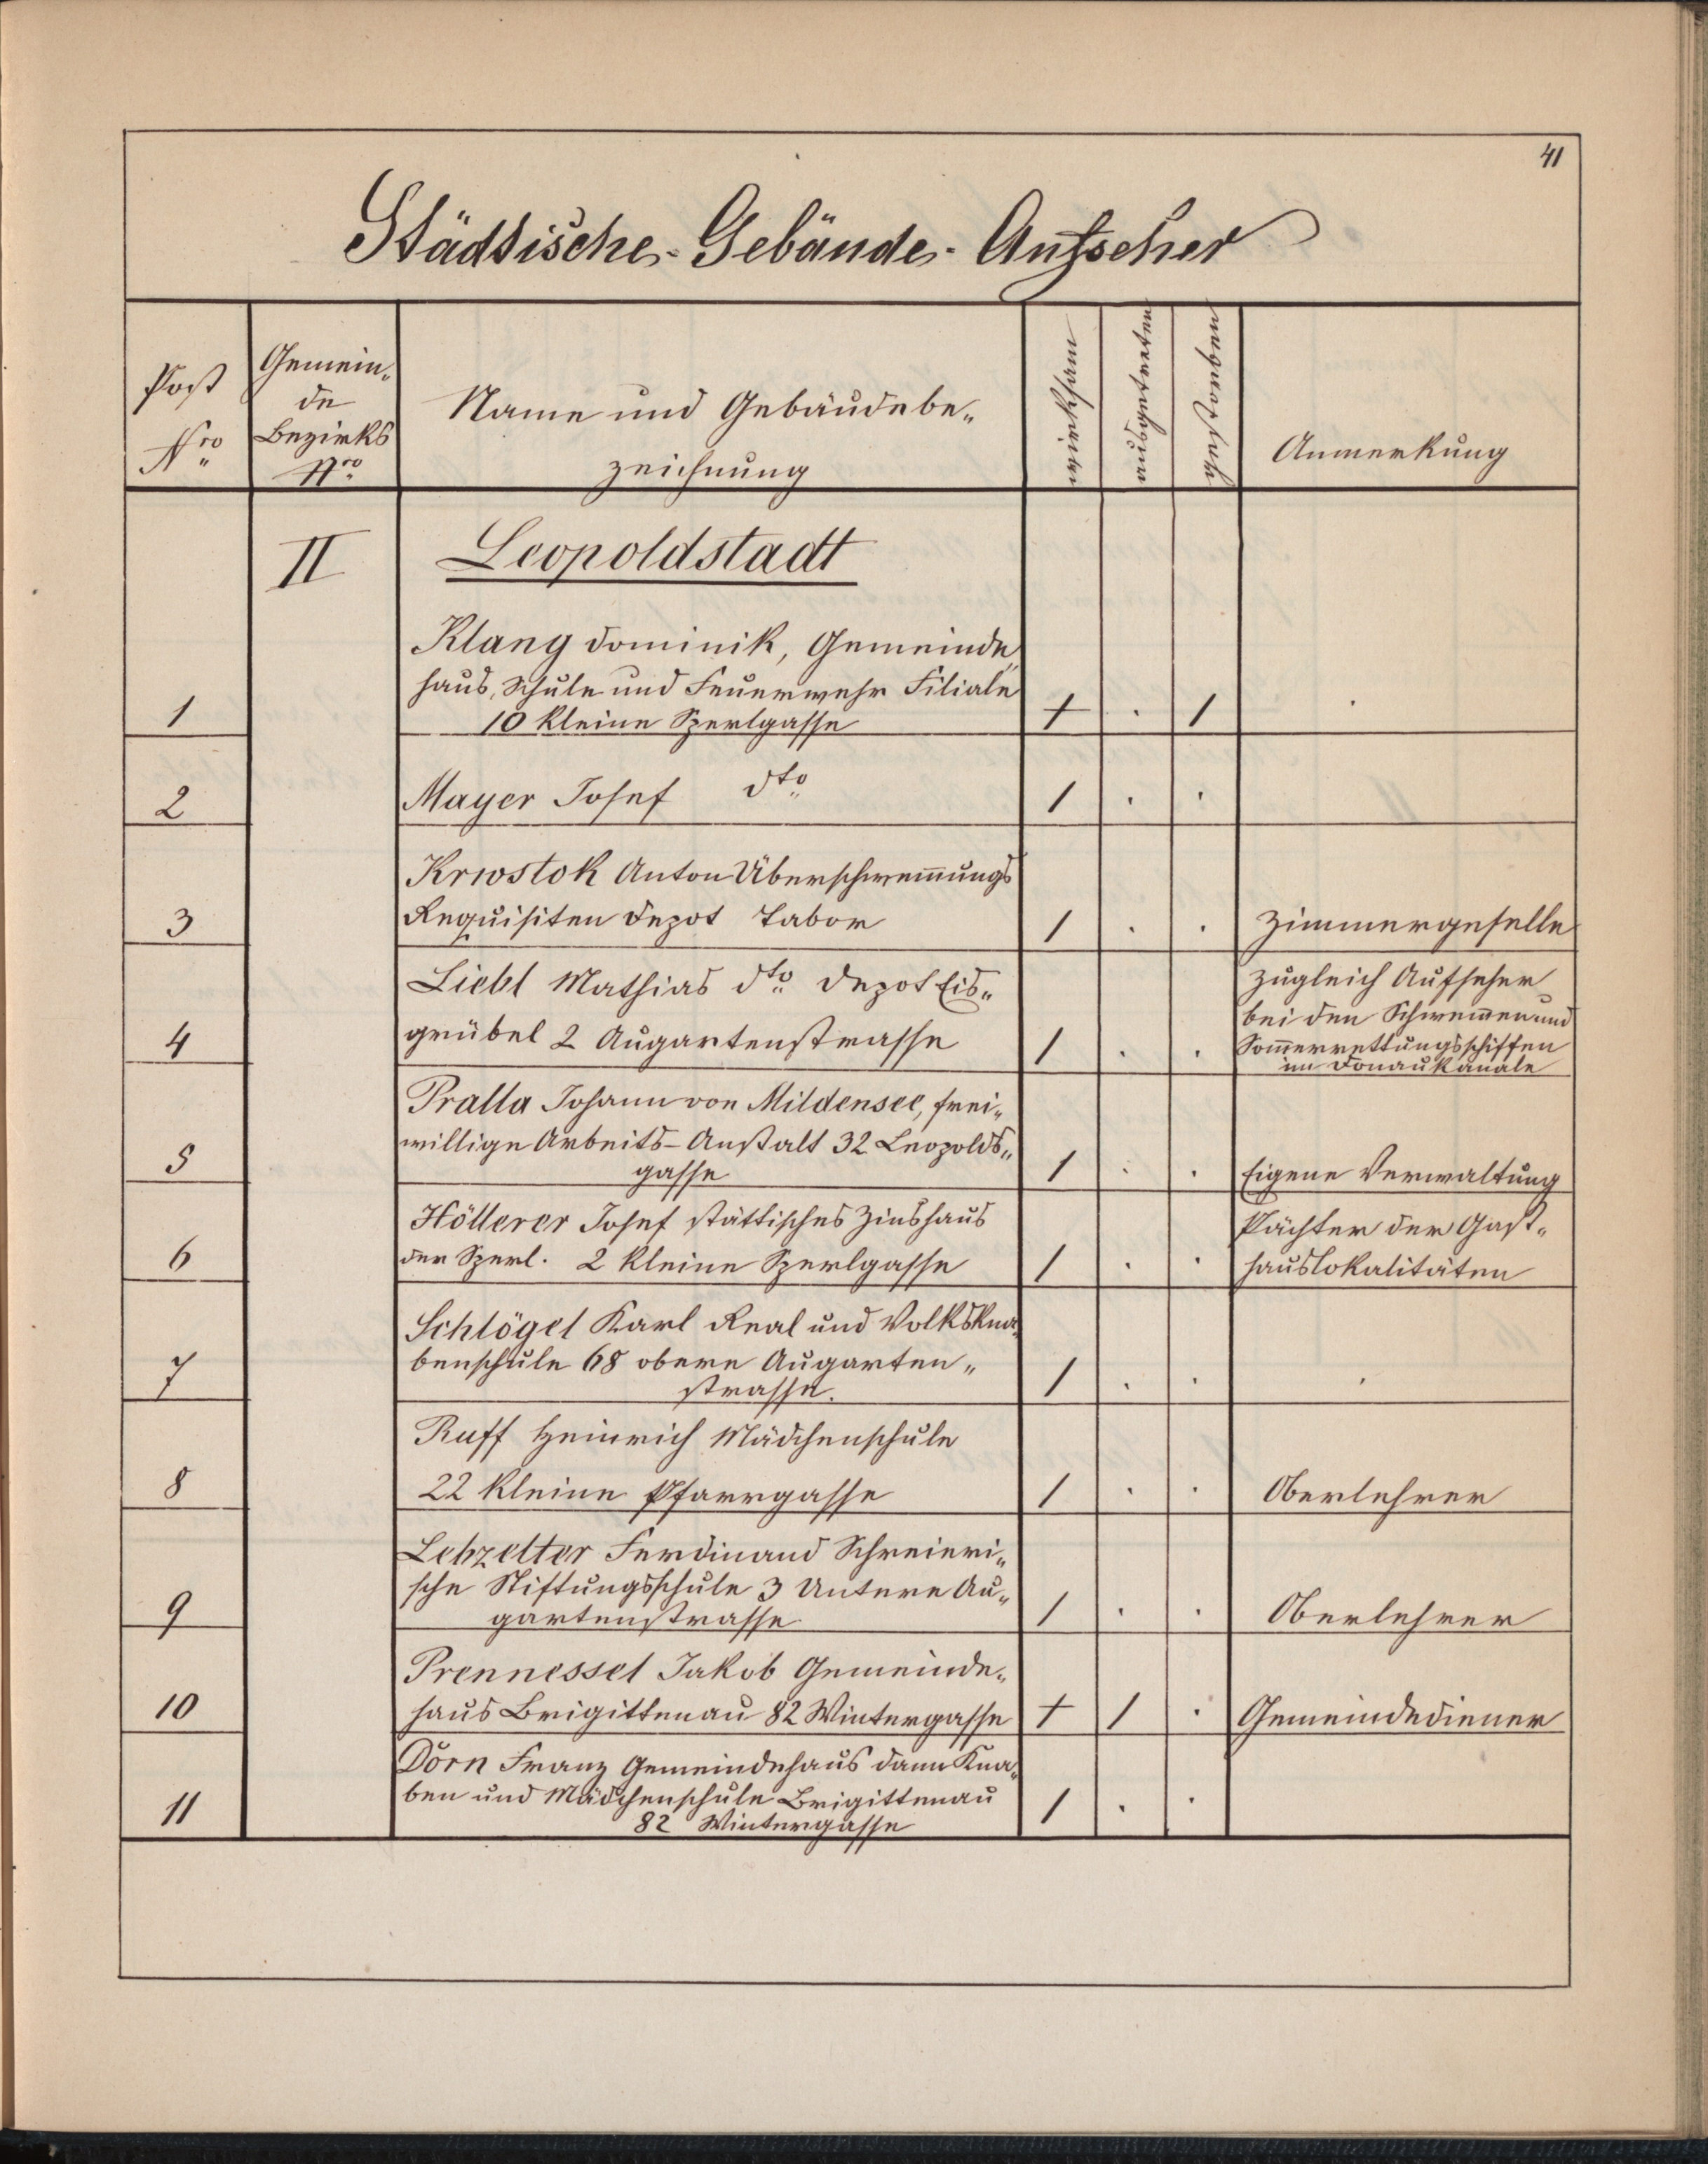 41
Städtische-Gebäude-Aufseher
Post
Nro
Gemein„
de
Bezirks
Nro
Name und Gebäudebe„
zeichnung
wirksam
ausgetreten
gestorben
Anmerkung
II
Leopoldstadt
Klang Dominik, Gemeinde„
haus, Schule und Feuerwehr Filiale
1 10 kleine Sperlgasse + . 1 .
2 Mayer Josef dto 1 . .
Krwstok Anton Überschwem̄ungs
3 Requisiten Depot Tabor 1 . . Zimmergeselle
Liebl Mathias dto Depot Eis„
grübel 2 Augartenstrasse
4 1 . .
zugleich Aufseher
bei den Schwem̄en und
Som̄errettungsschiffen
im Donaukanale
Pralla Johann von Mildensee, frei„
willige Arbeits-Anstalt 32 Leopolds„
5 gasse 1 . . Eigene Verwaltung
Höllerer Josef stättisches Zinshaus
6 der Sperl. 2 kleine Sperlgasse 1 . .
Pächter der Gast„
hauslokalitäten
Schlögel Karl Real und Volkskna„
benschule 68 obere Augarten„
7 strasse. 1 . . .
Ruff Heinrich Mädchenschule
8 22 kleine Pfarrgasse 1 . . Oberlehrer
Lebzelter Ferdinand Schreieri„
sche Stiftungsschule 3 Untere Au„
9 gartenstrasse 1 . . Oberlehrer
Prennessel Jakob Gemeinde„
10 haus Brigittenau 82 Wintergasse + 1 . Gemeindediener
Dörn Franz Gemeindehaus dann Kna„
ben und Mädchenschule Brigittenau
11 82 Wintergasse 1 . .